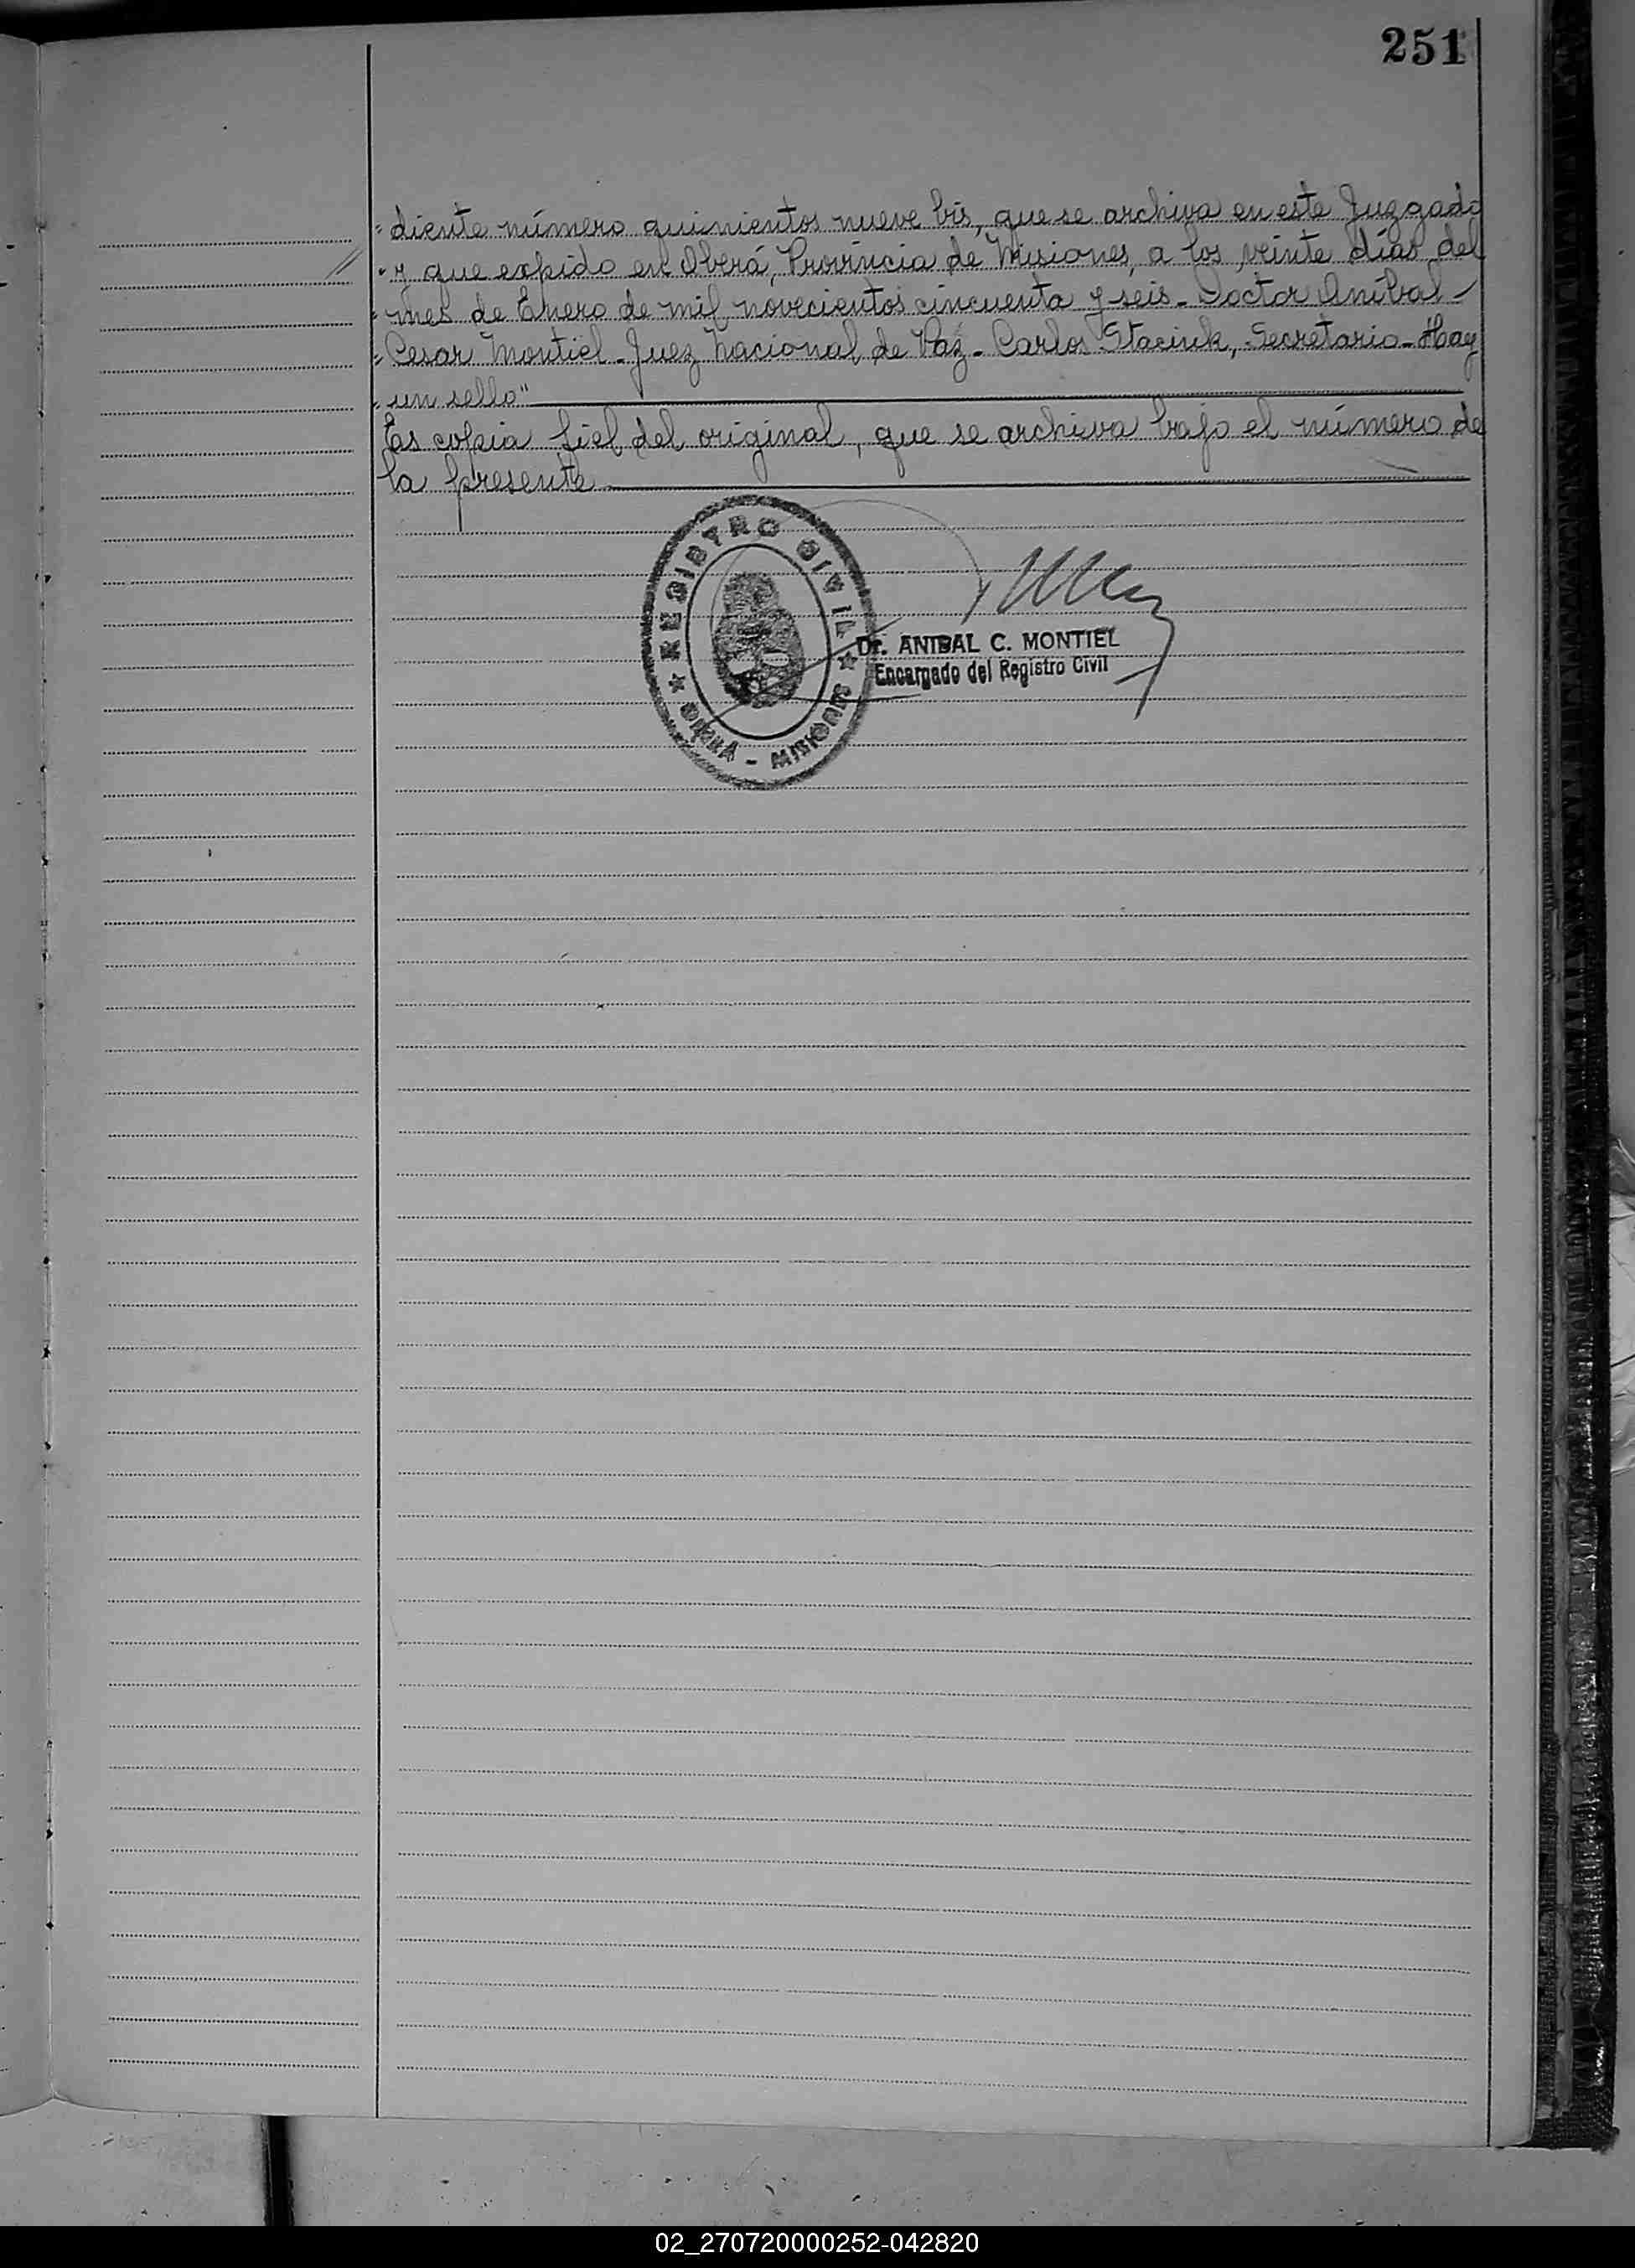 251
"diente número quinientos nueve bis, que se archiva en este Juzgado
"y que expido en Oberá, Provincia de Misiones, a los veinte días del
"mes de Enero de mil novecientos cincuenta y seis_ Doctor Anibal_
"Cesar Montiel_ Juez Nacional de Paz_ Carlos Staciuk, Secretario_ Hay
"un sello"
Es copia fiel del original, que se archiva bajo el número de
la presente
REGISTRO CIVIL
OBERÁ - MISIONES
Dr. ANIBAL C. MONTIEL
Encargado del Registro Civil
02_270720000252-042820